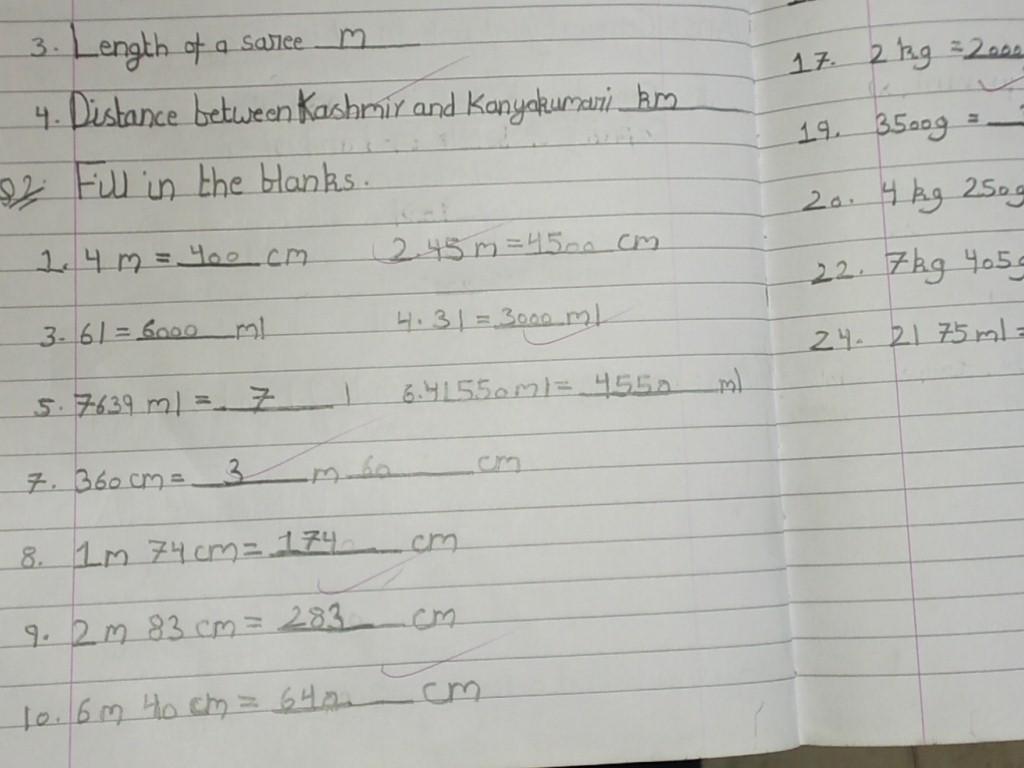 3. Length of a saree m
4. Distance between Kashmir and Kanyakumari km
Q2. Fill in the blanks.
1. 4 m = 400 cm 2. 45 m = 4500 cm
3. 6l = 6000 ml 4. 3l = 3000 ml
5. 7639 ml = 7 l 6. 4l 550 ml = 4550 ml
7. 360 cm = 3 m 60 cm
8. 1m 74 cm = 174 cm
9. 2 m 83 cm = 283 cm
10. 6m 40 cm = 640 cm
17. 2 kg = 2000
19. 3500g =
20. 4 kg 250g
22. 7kg 405g
24. 2l 75 ml =